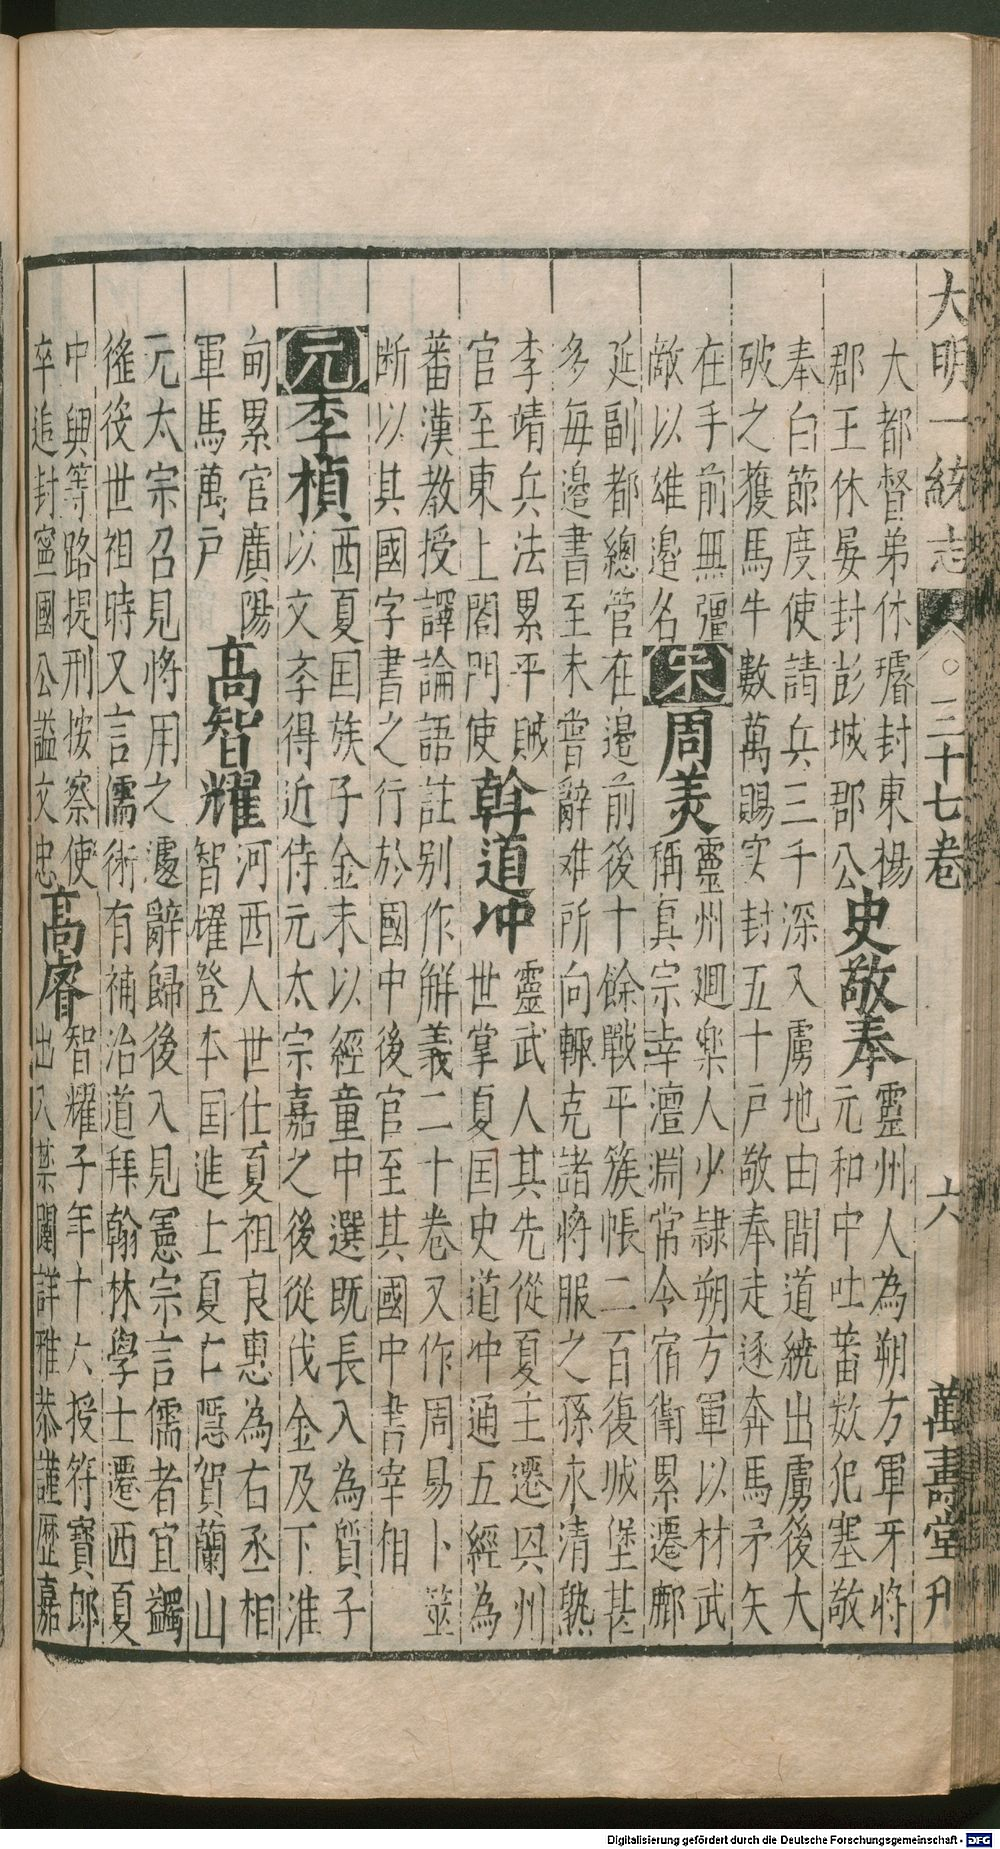 大明一統志 〇三十七卷 六 萬壽堂刋
大都督弟休璿封東楊
郡王休晏封彭城郡公
史敬奉
靈州人為朔方軍牙將
元和中吐蕃数犯塞敬
奉白節度使請兵三千深入虜地由間道繞出虜後大
破之獲馬牛數萬賜实封五十户敬奉走逐奔馬矛矢
在手前無彊
敵以雄邉名
宋
周美
靈州廻樂人少隷朔方軍以材武
稱真宗幸澶淵常令宿衛累遷鄜
延副都總管在邉前後十餘戰平簇帳二百復城堡甚
多毎邉書至未嘗辭难所向輙克諸將服之孫永清
李靖兵法累平賊
官至東上閤門使
斡道冲
靈武人其先從夏主遷㒷州
世掌夏囯史道冲通五經為
蕃漢教授譯論語註别作解義二十卷又作周易卜筮
断以其國字書之行於國中後官至其國中書宰相
元
李楨
西夏囯族子金末以經童中選既長入為質子
以文李得近侍元太宗嘉之後從伐金及下淮
甸累官廣陽
軍馬萬户
髙智耀
河西人世仕夏祖良惠為右丞相
智耀登本囯進士夏亡隱賀蘭山
元太宗召見將用之遽辭歸後入見憲宗言儒者宜蠲
徭役世祖時又言儒術有補治道拜翰林學士遷西夏
中興等路提刑按察使
卒追封寧國公謚文忠
髙睿
智耀子年十六授符寳郎
出入禁闥詳雅恭謹歴嘉
Digitalisierung gefördert durch die Deutsche Forschungsgemeinschaft - DFG